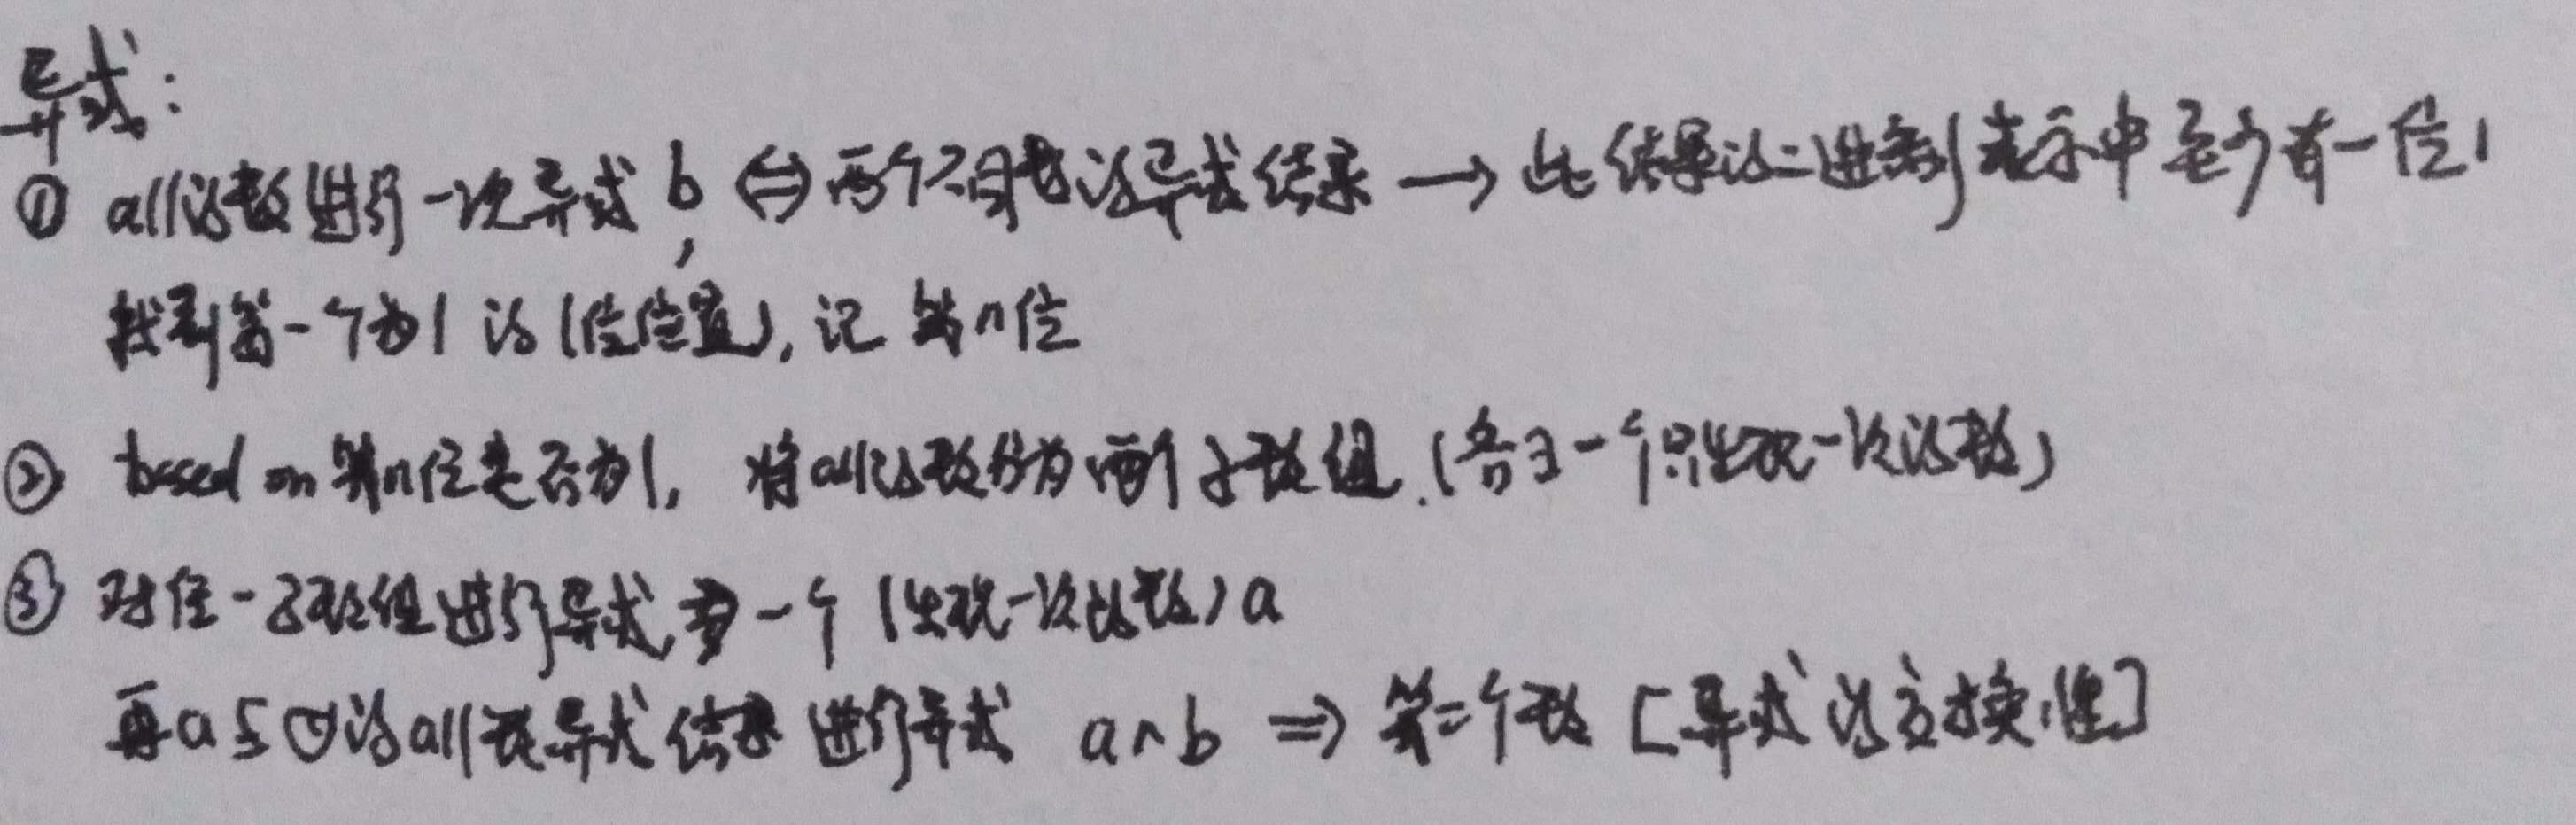 异或:
① all的数进行一次异或 b ⇔ 两个不同数的异或结果 → 此结果的二进制表示中至少有一位1
找到第一个为1的(位位置), 记 第n位
② based on 第n位是否为1, 将all的数分为两个子数组.(各含一个只出现一次的数)
③ 对任一子数组进行异或, 得一个(出现一次的数)a
再a与①的all数异或结果进行异或 a^b ⇒ 第二个数 [异或的交换性]